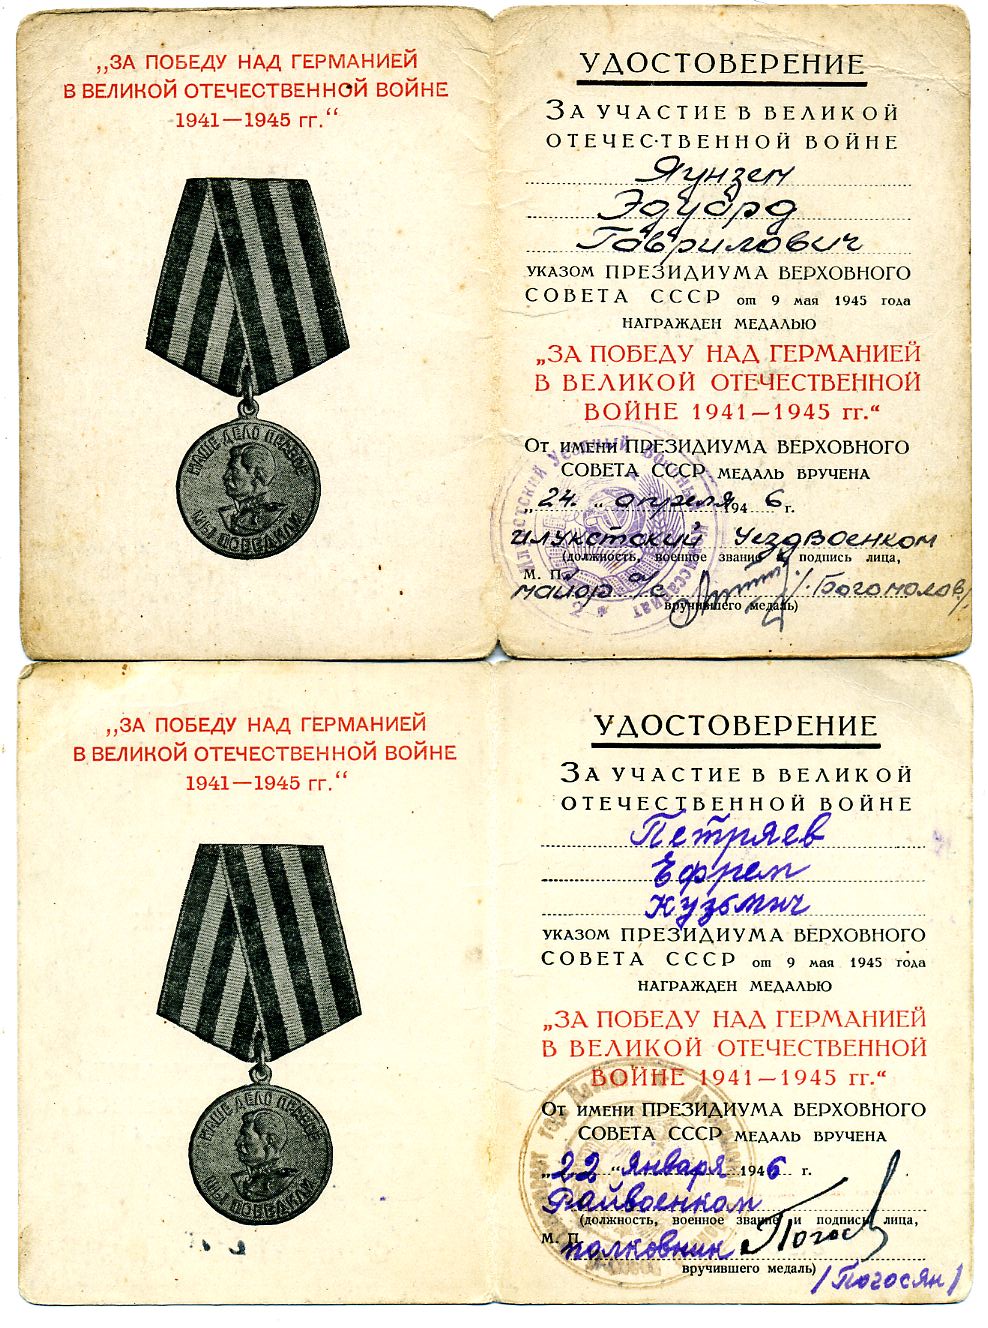 „ЗА ПОБЕДУ НАД ГЕРМАНИЕЙ
В ВЕЛИКОЙ ОТЕЧЕСТВЕННОЙ ВОЙНЕ
1941—1945 гг.“
НАШЕ ДЕЛО ПРАВОЕ
МЫ ПОБЕДИЛИ
УДОСТОВЕРЕНИЕ
ЗА УЧАСТИЕ В ВЕЛИКОЙ
ОТЕЧЕСТВЕННОЙ ВОЙНЕ
Яунзем
Эдуард
Гаврилович
УКАЗОМ ПРЕЗИДИУМА ВЕРХОВНОГО
СОВЕТА СССР от 9 мая 1945 года
НАГРАЖДЕН МЕДАЛЬЮ
„ЗА ПОБЕДУ НАД ГЕРМАНИЕЙ
В ВЕЛИКОЙ ОТЕЧЕСТВЕННОЙ
ВОЙНЕ 1941—1945 гг.“
ОТ ИМЕНИ ПРЕЗИДИУМА ВЕРХОВНОГО
СОВЕТА СССР МЕДАЛЬ ВРУЧЕНА
„24“ апреля 1946 г.
Илукстский Уездвоенком
(должность, военное звание и подпись лица,
М. П.
майор а/с /Богомолов/
вручившего медаль)
Илукстский Уездный Военный Комиссариат
„ЗА ПОБЕДУ НАД ГЕРМАНИЕЙ
В ВЕЛИКОЙ ОТЕЧЕСТВЕННОЙ ВОЙНЕ
1941—1945 гг.“
НАШЕ ДЕЛО ПРАВОЕ
МЫ ПОБЕДИЛИ
УДОСТОВЕРЕНИЕ
ЗА УЧАСТИЕ В ВЕЛИКОЙ
ОТЕЧЕСТВЕННОЙ ВОЙНЕ
Петряев
Ефрем
Кузьмич
УКАЗОМ ПРЕЗИДИУМА ВЕРХОВНОГО
СОВЕТА СССР от 9 мая 1945 года
НАГРАЖДЕН МЕДАЛЬЮ
„ЗА ПОБЕДУ НАД ГЕРМАНИЕЙ
В ВЕЛИКОЙ ОТЕЧЕСТВЕННОЙ
ВОЙНЕ 1941—1945 гг.“
ОТ ИМЕНИ ПРЕЗИДИУМА ВЕРХОВНОГО
СОВЕТА СССР МЕДАЛЬ ВРУЧЕНА
„22“ января 1946 г.
Райвоенком
(должность, военное звание и подпись лица,
М. П.
полковник Погос
вручившего медаль)
/Погосян/